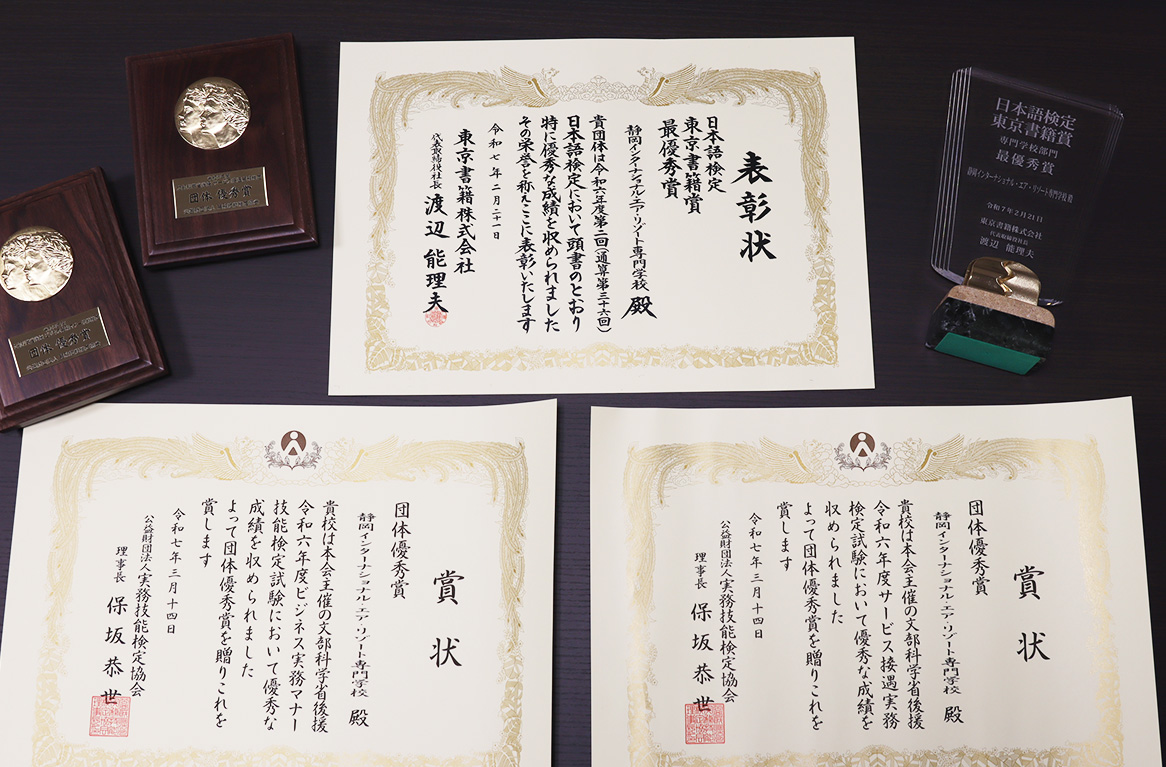 表彰状
日本語検定
東京書籍賞
最優秀賞
静岡インターナショナル・エア・リゾート専門学校 殿
貴団体は令和六年度第二回(通算第三十六回)
日本語検定において頭書のとおり
特に優秀な成績を収められました
その栄誉を称えここに表彰いたします
令和七年二月二十一日
東京書籍株式会社
代表取締役社長 渡辺 能理夫
日本語検定
東京書籍賞
専門学校部門
最優秀賞
静岡インターナショナル・エア・リゾート専門学校 殿
令和7年2月21日
東京書籍株式会社
代表取締役社長
渡辺 能理夫
団体 優秀賞
団体 優秀賞
賞状
団体優秀賞
静岡インターナショナル・エア・リゾート専門学校 殿
貴校は本会主催の文部科学省後援
令和六年度ビジネス実務マナー
技能検定試験において優秀な
成績を収められました
よって団体優秀賞を贈りこれを
賞します
令和七年三月十四日
公益財団法人実務技能検定協会
理事長 保坂恭世
賞状
団体優秀賞
静岡インターナショナル・エア・リゾート専門学校 殿
貴校は本会主催の文部科学省後援
令和六年度サービス接遇実務
検定試験において優秀な成績を
収められました
よって団体優秀賞を贈りこれを
賞します
令和七年三月十四日
公益財団法人実務技能検定協会
理事長 保坂恭世